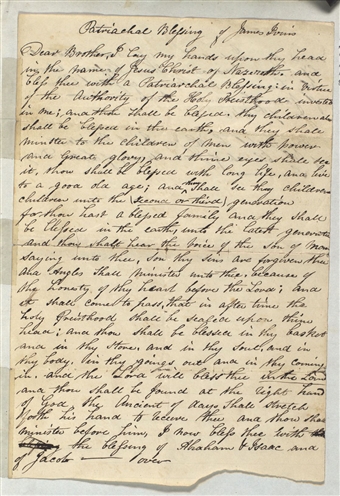 Patriachal Blessing of James Ivins
Dear Brother, I lay my hands upon thy head
in the name of Jesus Christ of Nazareth and
bless thee with a Patriarchal Blessing: in Virtue
of the Authority of the Holy Priesthood invested
in me; and thou shall be blessed. thy children also
shall be blessed in the earth, and they shall
minister to the children of men with power
and Great glory, and thine eyes shall see
it, thou shall be blessed with long life, and live
to a good old age; and thou shall see thy childrens
children unto the second or third generation
for thou hast a blessed family, and they shall
be blessed in the earth, unto the latest generation
and thou shall hear the voice of the Son of man
saying unto thee, Son thy sins are forgiven thee
and Angles shall minister unto thee: because of
the honesty of thy heart before the Lord; and
it shall come to pass, that in after time the
holy Priesthood shall be sealed upon thine
head; and thou shall be blessed in thy basket
and in thy store; and in thy soul, and in
thy body, in thy goings out and in thy coming
in and the Lord will bless thee in the Land
and thou shall be found at the right hand
of God, the Ancient of days shall stretch
forth his hand to receive thee and thou shall
minister before him, I now bless thee with
the blessing of Abraham & Isaac and
of Jacob over